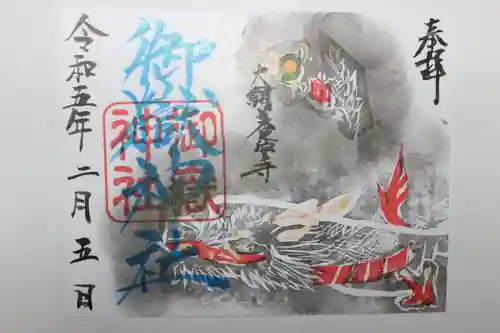 奉拝
御嶽神社
御嶽
神社
令和五年二月五日